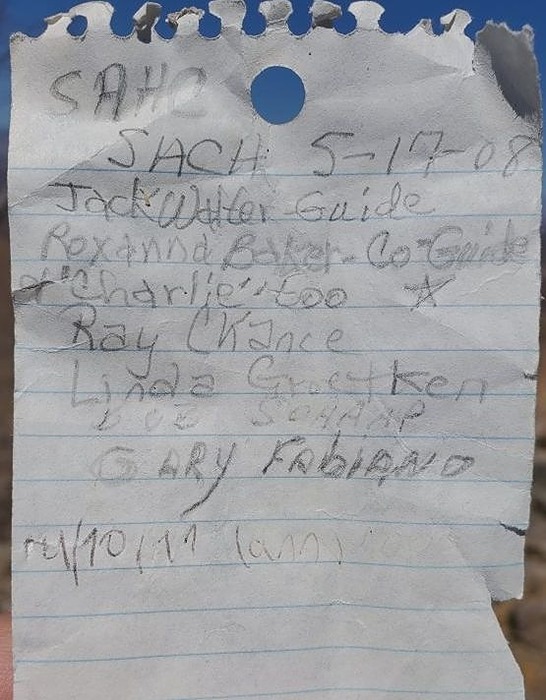 SAHC
SACH 5-17-08
Jack Walter-Guide
Roxanna Baker-Co-Guide
"Charlie" too ☆
Ray Chance
Linda Groetken
SCHAAP
GARY FABIANO
/10/11